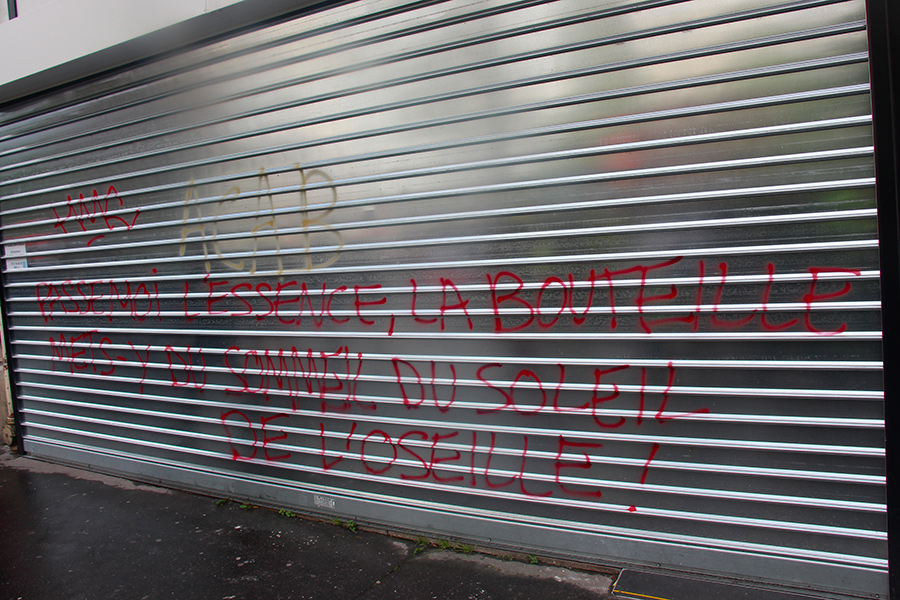 ACAB
PASSE MOI L'ESSENCE, LA BOUTEILLE
METS-Y DU SOMMEIL DU SOLEIL
DE L'OSEILLE !